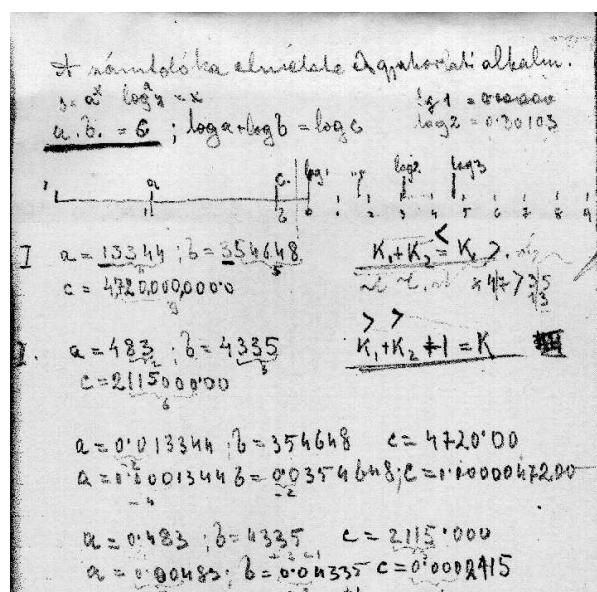 A számolóka elmélete és gyakorlati alkalm.
y = a^x log^a y = x lg 1 = 0.00000
a. b. = c ; log a + log b = log c log 2 = 0.30103
a c. log 1 log 2 log 3
1 b 0 1 2 3 4 5 6 7 8 9
I a = 13344 ; b = 354648 K₁+K₂ = K
c = 4720,000,000'0
a = 483 ; b = 4335 K₁+K₂ +1 = K
c = 2115000'00
a = 0'013344 ; b = 354648 c = 4720'00
a = 0'00013344 b = 0'0354648; c = 0'0000047200
a = 0'483 ; b = 4335 c = 2115'000
a = 0'00483; b = 0'04335 c = 0'0002115